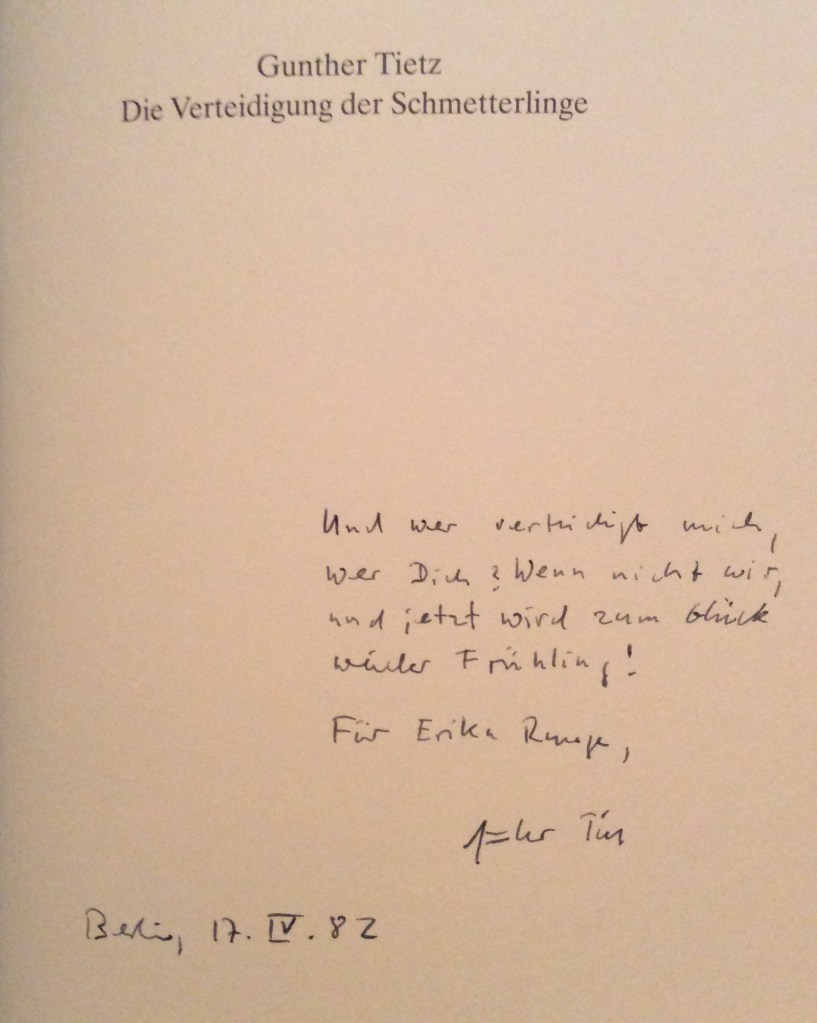 Gunther Tietz
Die Verteidigung der Schmetterlinge
Und wer verteidigt mich,
wer Dich? Wenn nicht wir,
und jetzt wird zum Glück
wieder Frühling!
Für Erika Runge,
Berlin, 17. IV. 82